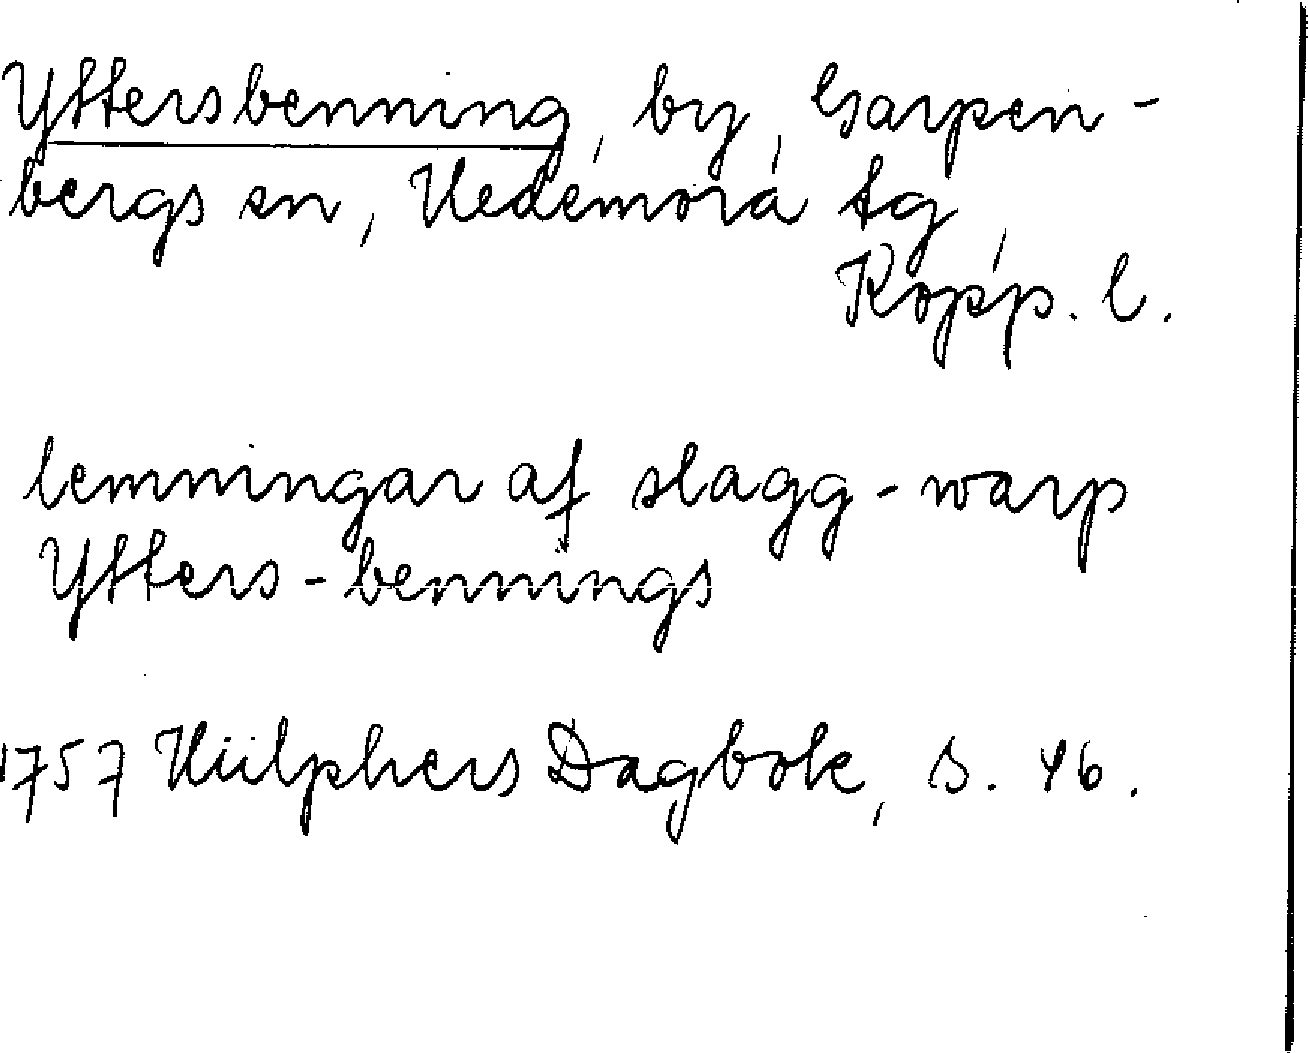 Yttersbenning, by, Garpen-
bergs sn, Hedemora tg,
Kopp. l.
lemningar af slagg-warp
Ytters-bennings
1757 Hülphers Dagbok, s. 46.